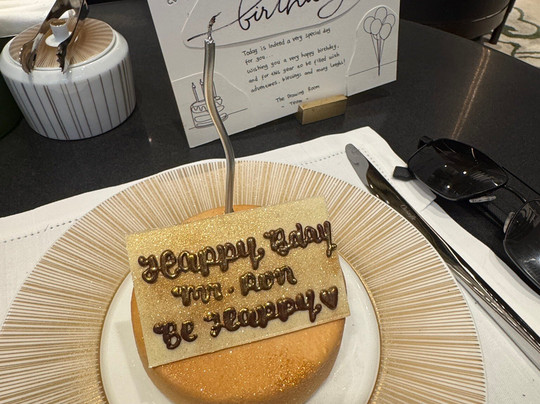 birthday
Today is indeed a very special day
for you...
Wishing you a very happy birthday,
and for this year to be filled with
adventures, blessings and many laughs!
The Drawing Room
Happy Bday
Mr. Ron
Be Happy ♥